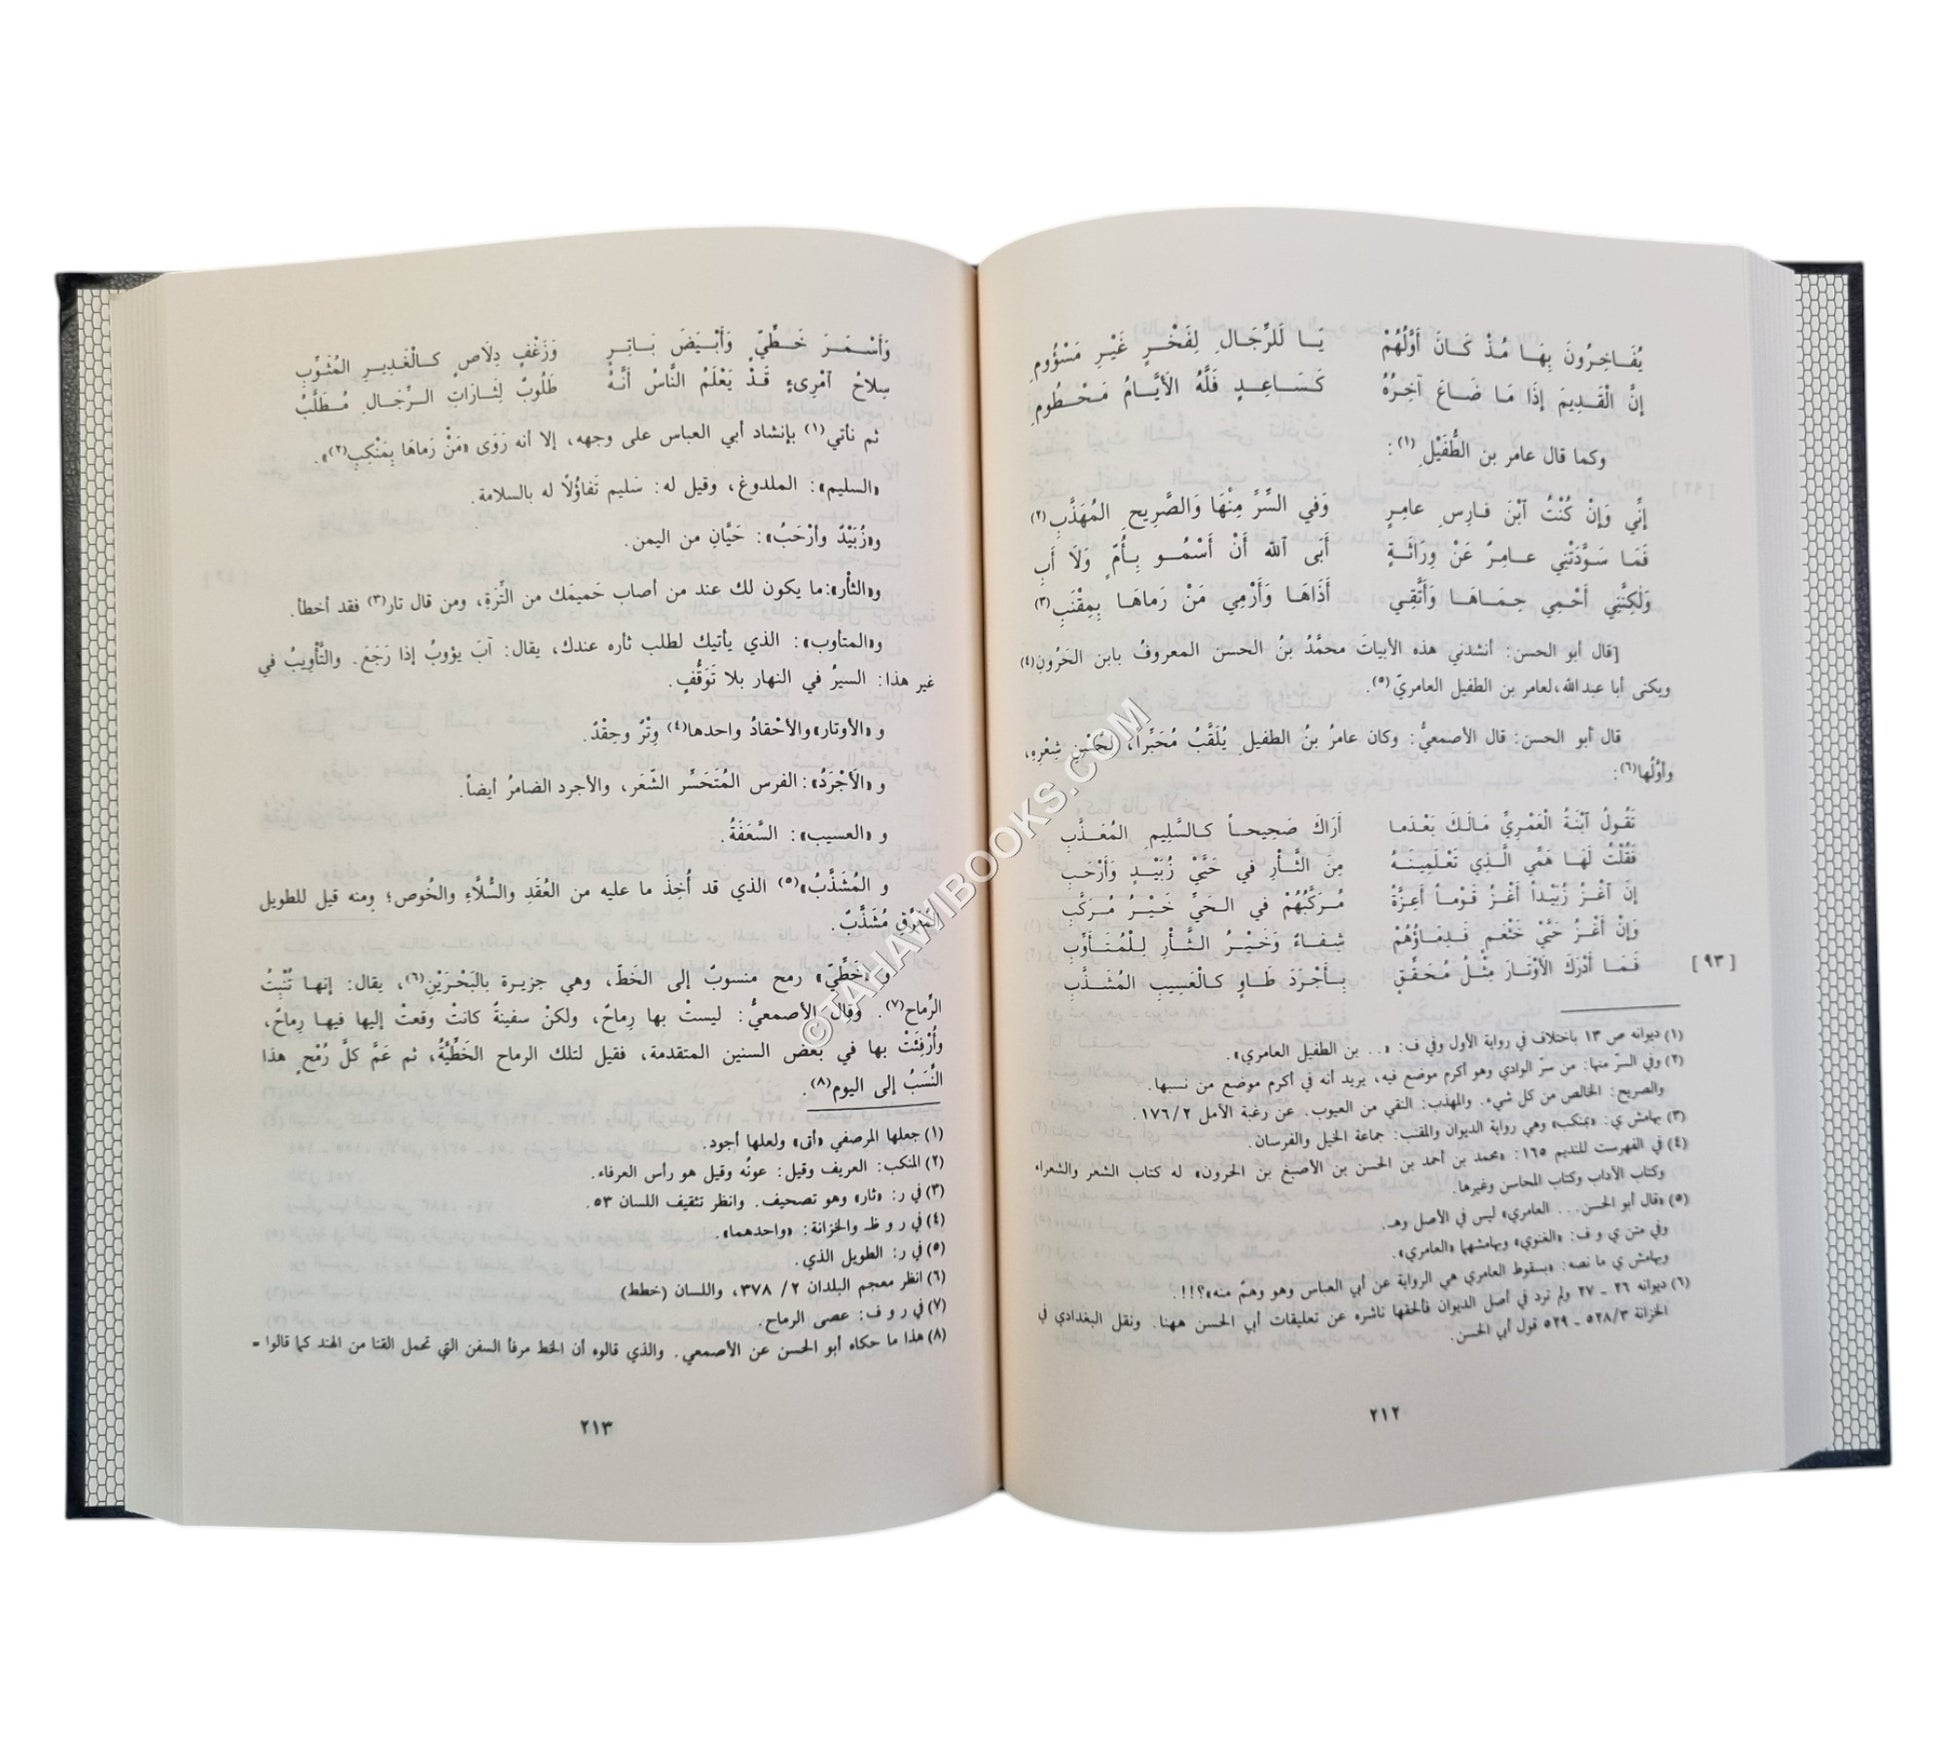 يُفَاخِرُونَ بِهَا مُذْ كَانَ أَوَّلُهُمْ يَا لَلرِّجَالِ لِفَخْرٍ غَيْرِ مَسْؤُومِ
إِنَّ الْقَدِيمَ إِذَا مَا ضَاعَ آخِرُهُ كَسَاعِدٍ فَلَّهُ الأَيَّامُ مَحْطُومِ
وكما قال عامر بن الطُّفَيْلِ(١):
إِنِّي وَإِنْ كُنْتُ ٱبْنَ فارِسِ عامِرٍ وَفي السِّرِّ مِنْهَا وَالصَّرِيحِ المُهَذَّبِ(٢)
فَمَا سَوَّدَتْنِي عامِرٌ عَنْ وِرَاثَةٍ أَبَى ٱللهُ أَنْ أَسْمُو بِأُمٍّ وَلَا أَبِ
وَلَكِنَّنِي أَحْمِي حِمَاهَا وَأَتَّقِي أَذَاهَا وَأَرْمِي مَنْ رَماهَا بِمِقْنَبِ(٣)
[قال أبو الحسن: أنشدني هذه الأبياتَ محمَّدُ بنُ الحسن المعروفُ بابن الحَرُونِ(٤)
ويكنى أبا عبدالله، لعامر بن الطفيل العامريّ(٥).
قال أبو الحسن: قال الأصمعيُّ: وكان عامرُ بنُ الطفيلِ يُلَقَّبُ مُحَبِّراً، لحُسْنِ شِعْرِهِ،
وأوَّلُها(٦):
تَقُولُ ٱبْنَةُ الْعَمْرِيِّ مَالَكَ بَعْدَما أَرَاكَ صَحِيحاً كالسَّلِيمِ المُعَذَّبِ
فَقُلْتُ لَهَا هَمِّي الَّذِي تَعْلَمِينَهُ مِنَ الثَّأْرِ في حَيَّيْ زُبَيْدٍ وَأَرْحَبِ
إِنَ ٱغْزُ زُبَيْداً أَغْزُ قَوْماً أَعِزَّةً مُرَكَّبُهُمْ في الحَيِّ خَيْرُ مُرَكَّبِ
وَإِنْ أَغْزُ حَيَّيْ خَثْعَمٍ فَدِمَاؤُهُمْ شِفاءٌ وَخَيْرُ الثَّأْرِ لِلْمُتَأَوِّبِ
[٩٣] فَمَا أَدْرَكَ الأَوْتَارَ مِثْلُ مُحَقِّقٍ بِأَجْرَدَ طَاوٍ كالْعَسِيبِ المُشَذَّبِ
(١) ديوانه ص ١٣ باختلاف في رواية الأول وفي ف: «.. بن الطفيل العامري».
(٢) وفي السرّ منها: من سرّ الوادي وهو أكرم موضع فيه، يريد أنه في أكرم موضع من نسبها.
والصريح: الخالص من كل شيء. والمهذب: النقي من العيوب. عن رغبة الآمل ١٧٦/٢.
(٣) بهامش ي: «بمنكب» وهي رواية الديوان والمقنب: جماعة الخيل والفرسان.
(٤) في الفهرست للنديم ١٦٥: «محمد بن أحمد بن الحسن بن الأصبغ بن الحرون» له كتاب الشعر والشعراء
وكتاب الآداب وكتاب المحاسن وغيرها.
(٥) «قال أبو الحسن... العامري» ليس في الأصل وهـ.
وفي متن ي و ف: «الغنوي» وبهامشهما «العامري».
وبهامش ي ما نصه: «بسقوط العامري هي الرواية عن أبي العباس وهو وهمٌ منه»؟!!.
(٦) ديوانه ٢٦ - ٢٧ ولم ترد في أصل الديوان فألحقها ناشره عن تعليقات أبي الحسن ههنا. ونقل البغدادي في
الخزانة ٥٢٨/٣ - ٥٢٩ قول أبي الحسن.
٢١٢
وَأَسْمَرَ خَطِّيٍّ وَأَبْيَضَ بَاتِرٍ وَزَغْفٍ دِلَاصٍ كالْغَدِيرِ المُثَوِّبِ
سِلاحُ ٱمْرِىءٍ قَدْ يَعْلَمُ النَّاسُ أَنَّهُ طَلُوبٌ لِثَارَاتِ الرِّجَالِ مُطَلَّبُ
ثم نأتي(١) بإنشاد أبي العباس على وجهه، إلا أنه رَوَى «مَنْ رَماهَا بِمَنْكِبِ(٢)».
«السليم»: الملدوغ، وقيل له: سَليم تَفاؤُلاً له بالسلامة.
و«زُبَيْدٌ وأرْحَبُ»: حَيَّانِ من اليمن.
و«الثأر»: ما يكون لك عند من أصاب حَميمَك من التِّرَةِ، ومن قال تار(٣) فقد أخطأ.
و«المتأوب»: الذي يأتيك لطلب ثأره عندك، يقال: آبَ يؤوبُ إذا رَجَعَ. والتَّأْوِيبُ في
غير هذا: السيرُ في النهار بلا تَوَقُّفٍ.
و «الأوتار» والأحْقادُ واحدها(٤) وِتْرٌ وحِقْدٌ.
و «الأَجْرَدُ»: الفرس المُتَحَسِّر الشَّعَر، والأجرد الضامرُ أيضاً.
و «العسيب»: السَّعَفَةُ.
و المُشَذَّبُ»(٥) الذي قد أُخِذَ ما عليه من العُقَدِ والسُّلَّاءِ والخُوص؛ ومنه قيل للطويل
المُعَرَّقِ مُشَذَّبٌ.
و «خَطِّيّ» رمح منسوبٌ إلى الخَطّ، وهي جزيرة بالبَحْرَيْنِ(٦)، يقال: إنها تُنْبِتُ
الرِّماح(٧). وقال الأصمعيُّ: ليستْ بها رِماحٌ، ولكنْ سفينةٌ كانتْ وقعتْ إليها فيها رِماحٌ،
وأُرْفِئَتْ بها في بعض السنين المتقدمة، فقيل لتلك الرماح الخَطِّيَّةُ، ثم عَمَّ كلَّ رُمْحٍ هذا
النَّسَبُ إلى اليوم(٨).
(١) جعلها المرصفي «أتى» ولعلها أجود.
(٢) المنكب: العريف وقيل: عونُه وقيل هو رأس العرفاء.
(٣) في ر: «ثار» وهو تصحيف. وانظر تثقيف اللسان ٥٣.
(٤) في ر و ظ والخزانة: «واحدهما».
(٥) في ر: الطويل الذي.
(٦) انظر معجم البلدان ٢/ ٣٧٨، واللسان (خطط)
(٧) في ر و ف: عصى الرماح.
(٨) هذا ما حكاه أبو الحسن عن الأصمعي. والذي قالوه أن الخط مرفأ السفن التي تحمل القنا من الهند كما قالوا =
٢١٣
©TAHAWIBOOKS.COM